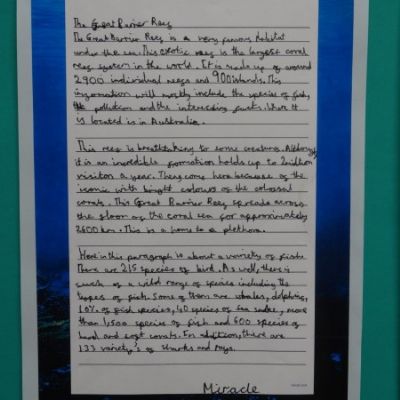 The Great Barrier Reef
The Great Barrier Reef is a very famous habitat
under the sea. This exotic reef is the largest coral
reef system in the world. It is made up of around
2900 individual reefs and 900 islands. This
information will mostly include the species of fish,
pollution and the interesting facts. Where it
is located is in Australia.
This reef is breathtaking to some creatures. Although
it is an incredible formation holds up to 2 million
visitors a year. They come here because of the
iconic with bright colours of the colossal
corals. This Great Barrier Reef spreads across
the floor of the coral sea for approximately
2600 km. This is a home to a plethora.
Here in this paragraph is about a variety of fish.
There are 215 species of bird. As well, there is
such of a wild range of species including the
types of fish. Some of them are whales, dolphins,
10% of fish species, 40 species of sea snake, more
than 1,500 species of fish and 600 species of
hard and soft corals. In addition, there are
133 variety's of sharks and rays.
Miracle